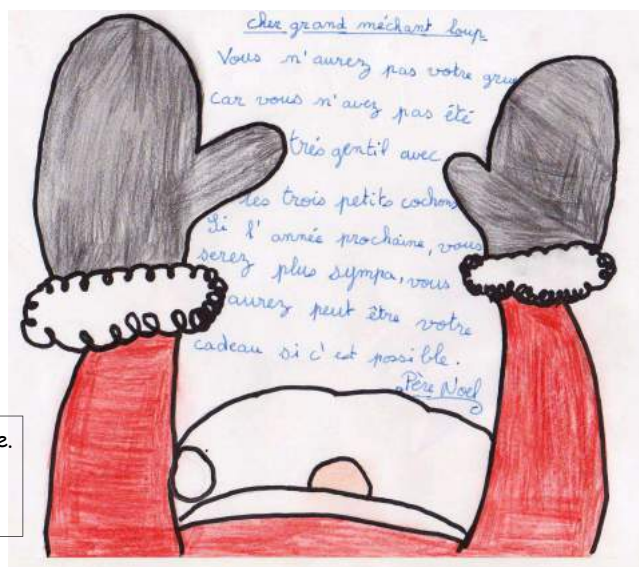 cher grand méchant loup
Vous n'aurez pas votre grue
car vous n'avez pas été
très gentil avec
les trois petits cochons
Si l'année prochaine, vous
serez plus sympa, vous
aurez peut être votre
cadeau si c'est possible.
Père Noel
e.